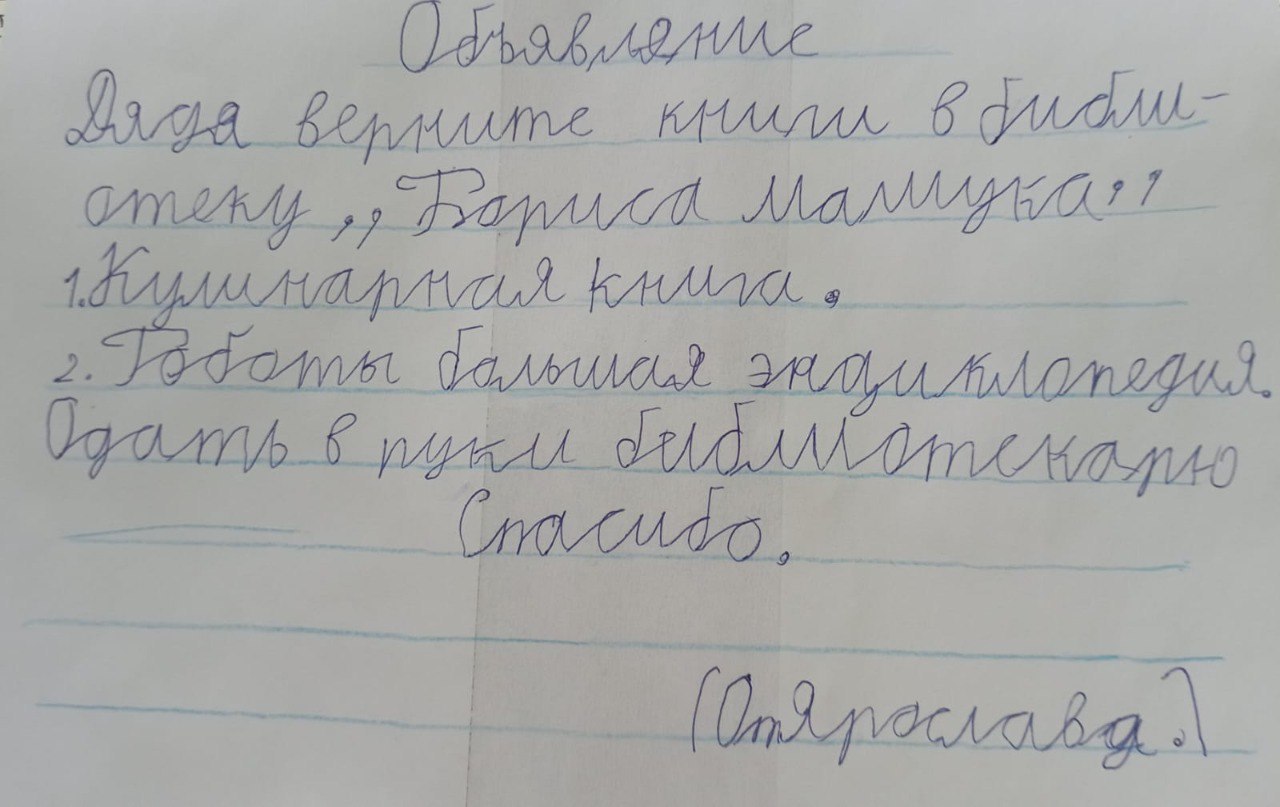 Объявление
Дядя верните книги в библи-
отеку ,,Бориса Мамлука,,
1. Кулинарная книга.
2. Роботы большая энциклопедия.
Одать в руки библиотекарю
Спасибо.
(От Ярослава.)